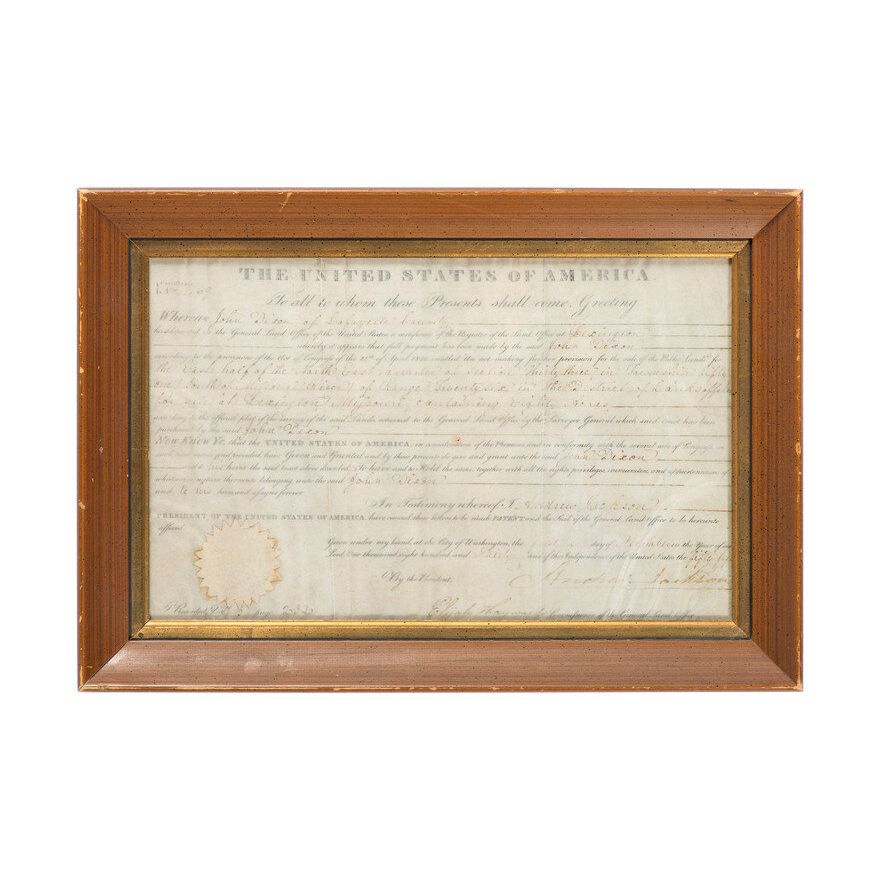 THE UNITED STATES OF AMERICA.
To all to whom these Presents shall come, Greeting
Whereas John Dixon of Lafayette County
deposited in the General Land Office of the United States a certificate of the Register of the Land Office at Lexington
whereby it appears that full payment has been made by the said John Dixon
according to the provisions of the Act of Congress of the 24th of April 1820 entitled An act making further provision for the sale of the Public Lands for
the East half of the North East quarter of Section Thirty three in Township fifty
one North of Range Twenty six in the District of Lands offered
for sale at Lexington Missouri containing eighty acres
according to the official plat of the survey of the said Lands returned to the General Land Office by the Surveyor General which said tract has been
purchased by the said John Dixon
Now Know Ye, that the UNITED STATES OF AMERICA, in consideration of the Premises and in conformity with the several acts of Congress
in such case made and provided have Given and Granted and by these presents do give and grant unto the said John Dixon
and to his heirs the said tract above described. To have and to Hold the same, together with all the rights privileges, immunities, and appurtenances of
whatsoever nature thereunto belonging unto the said John Dixon
and to his heirs and assigns forever
In Testimony whereof I, Andrew Jackson
PRESIDENT OF THE UNITED STATES OF AMERICA, have caused these letters to be made PATENT, and the Seal of the General Land Office to be hereunto
affixed.
Given under my hand, at the City of Washington, the first day of the Year of our
Lord One thousand eight hundred and thirty and of the Independence of the United States the fifty
By the President, Andrew Jackson
Recorded Vol page Elijah Hayward Commissioner of the General Land Office